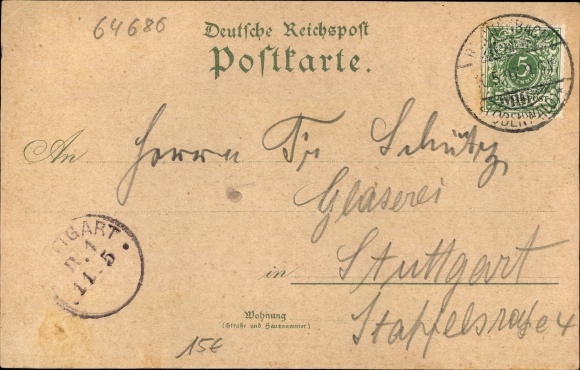 64686
Deutsche Reichspost
Postkarte.
5
(ODENWALD)
An Herrn Fr Schütz
Glaserei
TTGART
B.1
11.5
in Stuttgart
Wohnung
(Straße und Hausnummer)
Stapfelstraße 4
15€